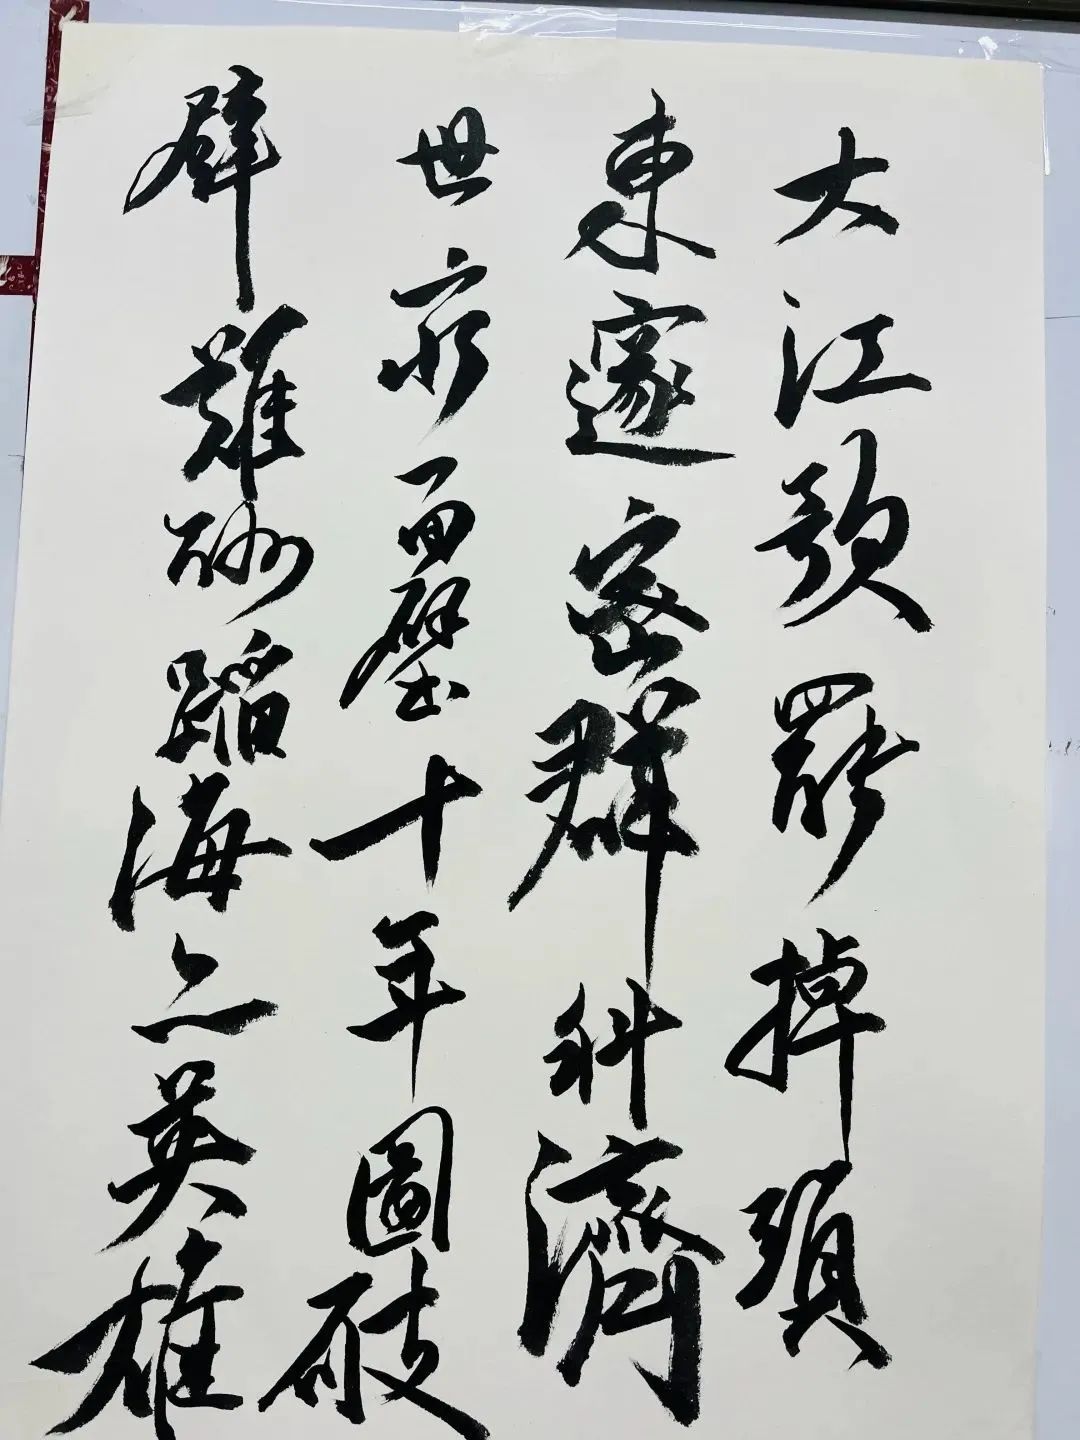 大江歌罷掉頭
東邃密群科濟
世穷面壁十年圖破
辟難酬蹈海亦英雄